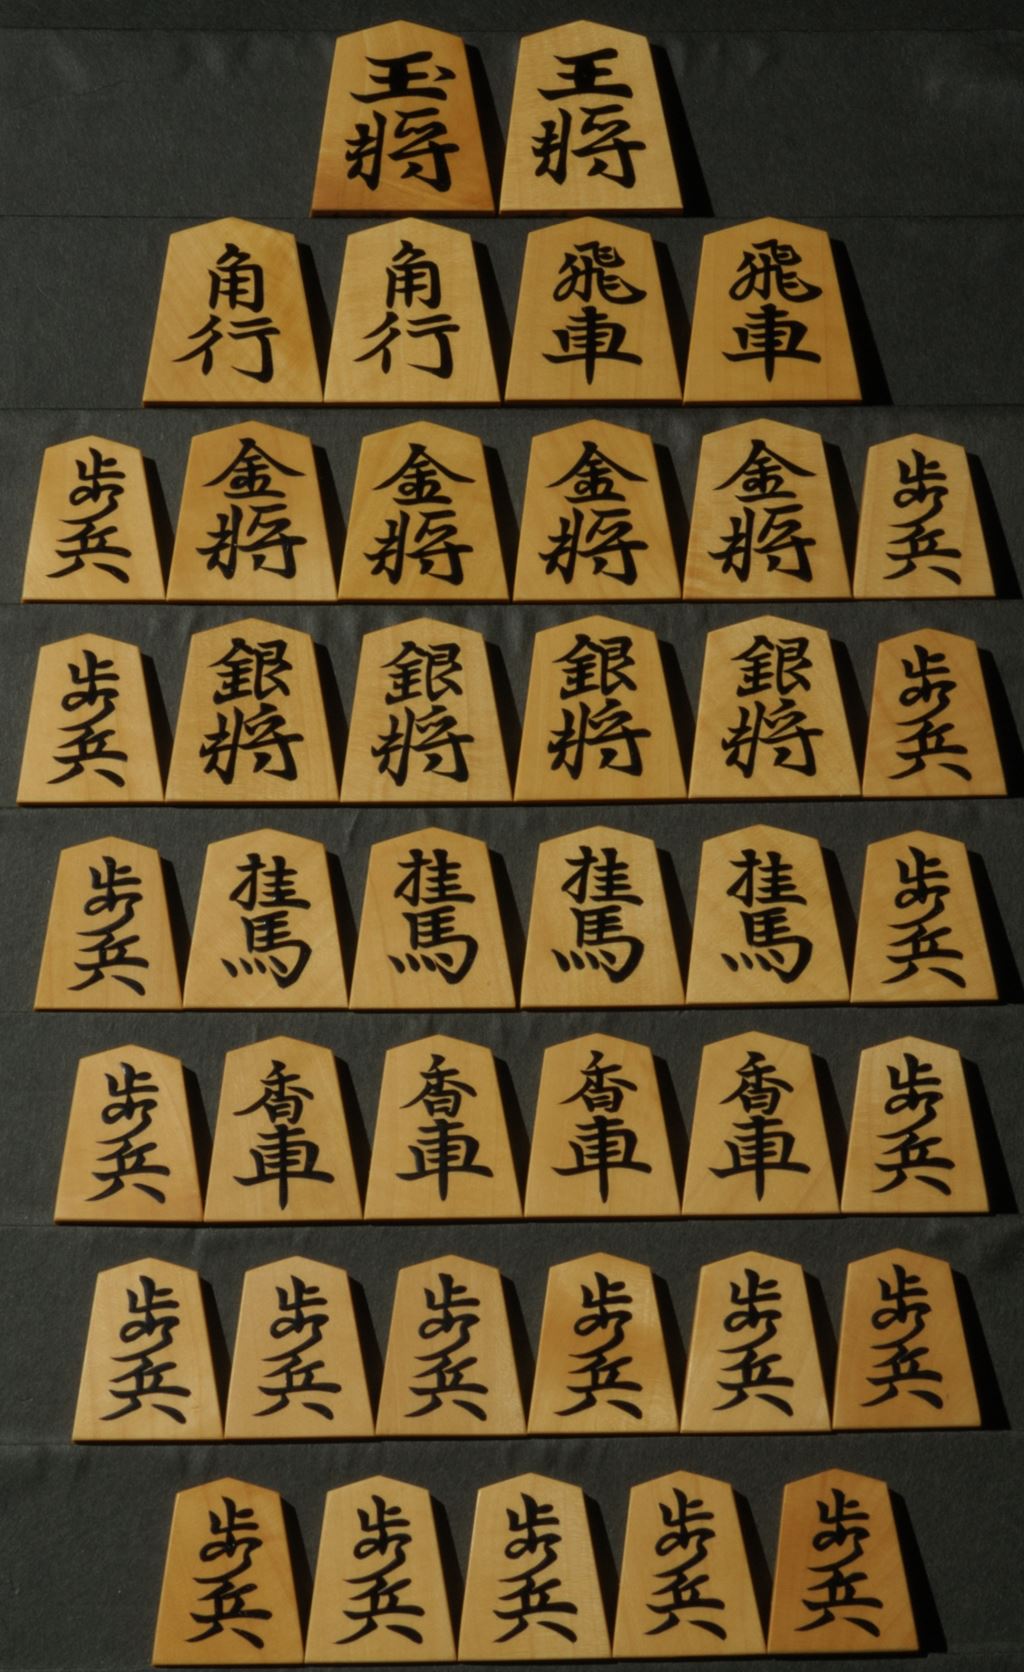 玉将 王将
角行 角行 飛車 飛車
歩兵 金将 金将 金将 金将 歩兵
歩兵 銀将 銀将 銀将 銀将 歩兵
歩兵 桂馬 桂馬 桂馬 桂馬 歩兵
歩兵 香車 香車 香車 香車 歩兵
歩兵 歩兵 歩兵 歩兵 歩兵 歩兵
歩兵 歩兵 歩兵 歩兵 歩兵